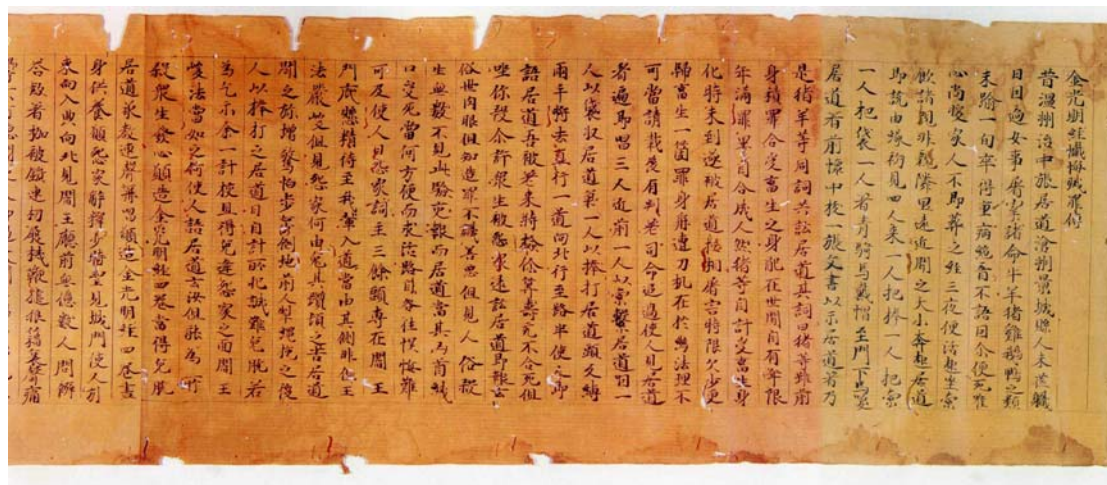 金光明經懺悔滅罪傳
昔溫州治中張居道滄州景城縣人未莅職
日因適女事屠宰諸命牛羊猪雞鵝鴨之類
未踰一旬卒得重病絕音不語因尒便死唯
心尚煖家人不即葬之經三夜便活起坐索
飲諸親非親隣里遠近聞之大小奔起居道
即說由緣初見四人来一人把棒一人把索
一人把袋一人著青騎馬戴帽至門下馬喚
居道著前懷中拔一張文書以示居道著乃
是猪羊等同詞共訟居道其詞曰猪等雖前
身積罪合受畜生之身配在世間自有年限
年滿罪畢自合成人然猪等自計受畜生身
化時未到遂被居道枉相屠害時限欠少更
歸畜生一箇罪身再遭刀机在於幽法理不
可當請裁後有判差司命追過使人見居道
著遍即唱三人近前一人以索繫居道咽一
人以袋収居道氣一人以棒打居道頭反縛
兩手將去直行一道向北行至路半使人即
語居道吾被差来時檢你筭壽元不合死但
坐你殺尒許眾生被怨家逮訟居道即報云
俗世肉眼但知造罪不識善惡但見人俗殺
生無數不見此驗交報而居道當其馬首緘
口受死當何方便而求活路自咎往悞悔難
可及使人曰怨家詞主三餘頭專在閻王
門底懸精待至我輩入道當由其側非但王
法嚴峻但見怨家何由免其躓頓之苦居道
聞之弥增驚怕步步倒地前人掣繩挽之後
人以棒打之居道曰自計所犯誠難免脫若
為乞示余一計校且得免逢怨家之面閻王
峻法當如之何使人語居道云汝但能為所
殺眾生發心願造金光明經四卷當得免脫
居道承教連聲再唱願造金光明經四卷盡
身供養願怨家解釋少時望見城門使人引
東向入曲向北見閻王廳前無億數人問辯
答款著枷被鎖遭杻履械鞭撻狼藉哀聲痛